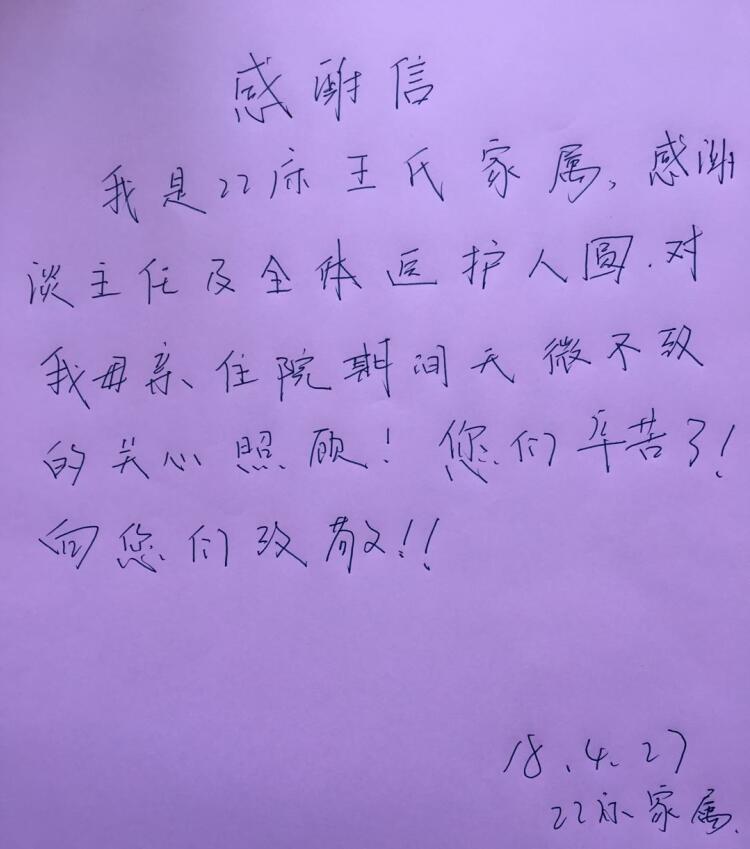 感谢信
我是22床王氏家属、感谢
谈主任及全体医护人圆.对
我母亲、住院期间无微不致
的关心照顾！您们辛苦了！
向您们致敬！！
18、4、27
22床家属.